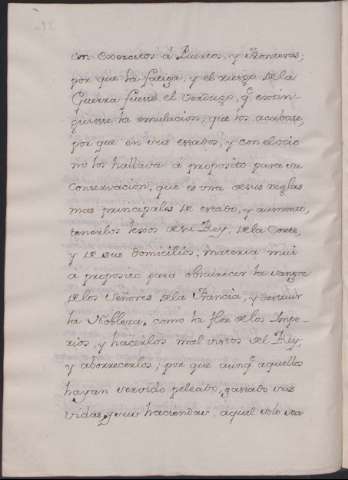 con Exercitos á Puertos, y Fronteras;
por que la fatiga, y el riesgo de la
Guerra fuese el verdugo, q.e extin-
guiesse la emulacion, que los acabase,
por que en sus estados, y con el ocio
no los hallava á proposito para su
Conservacion, que es una de sus reglas
mas principales de estado, y aumento,
tenerlos lexos de su Rey, de la Corte,
y de sus domicilios, materia mui
á proposito para obscurecer la sangre
de los Señores de la Francia, y destruir
la Nobleza, como la flor de los Impe-
rios, y hacerlos mal vistos del Rey,
y aborrecerlos; por que aunq.e aquellos
hayan servido peleado, gastado sus
vidas, y sus haciendas, aquel solo